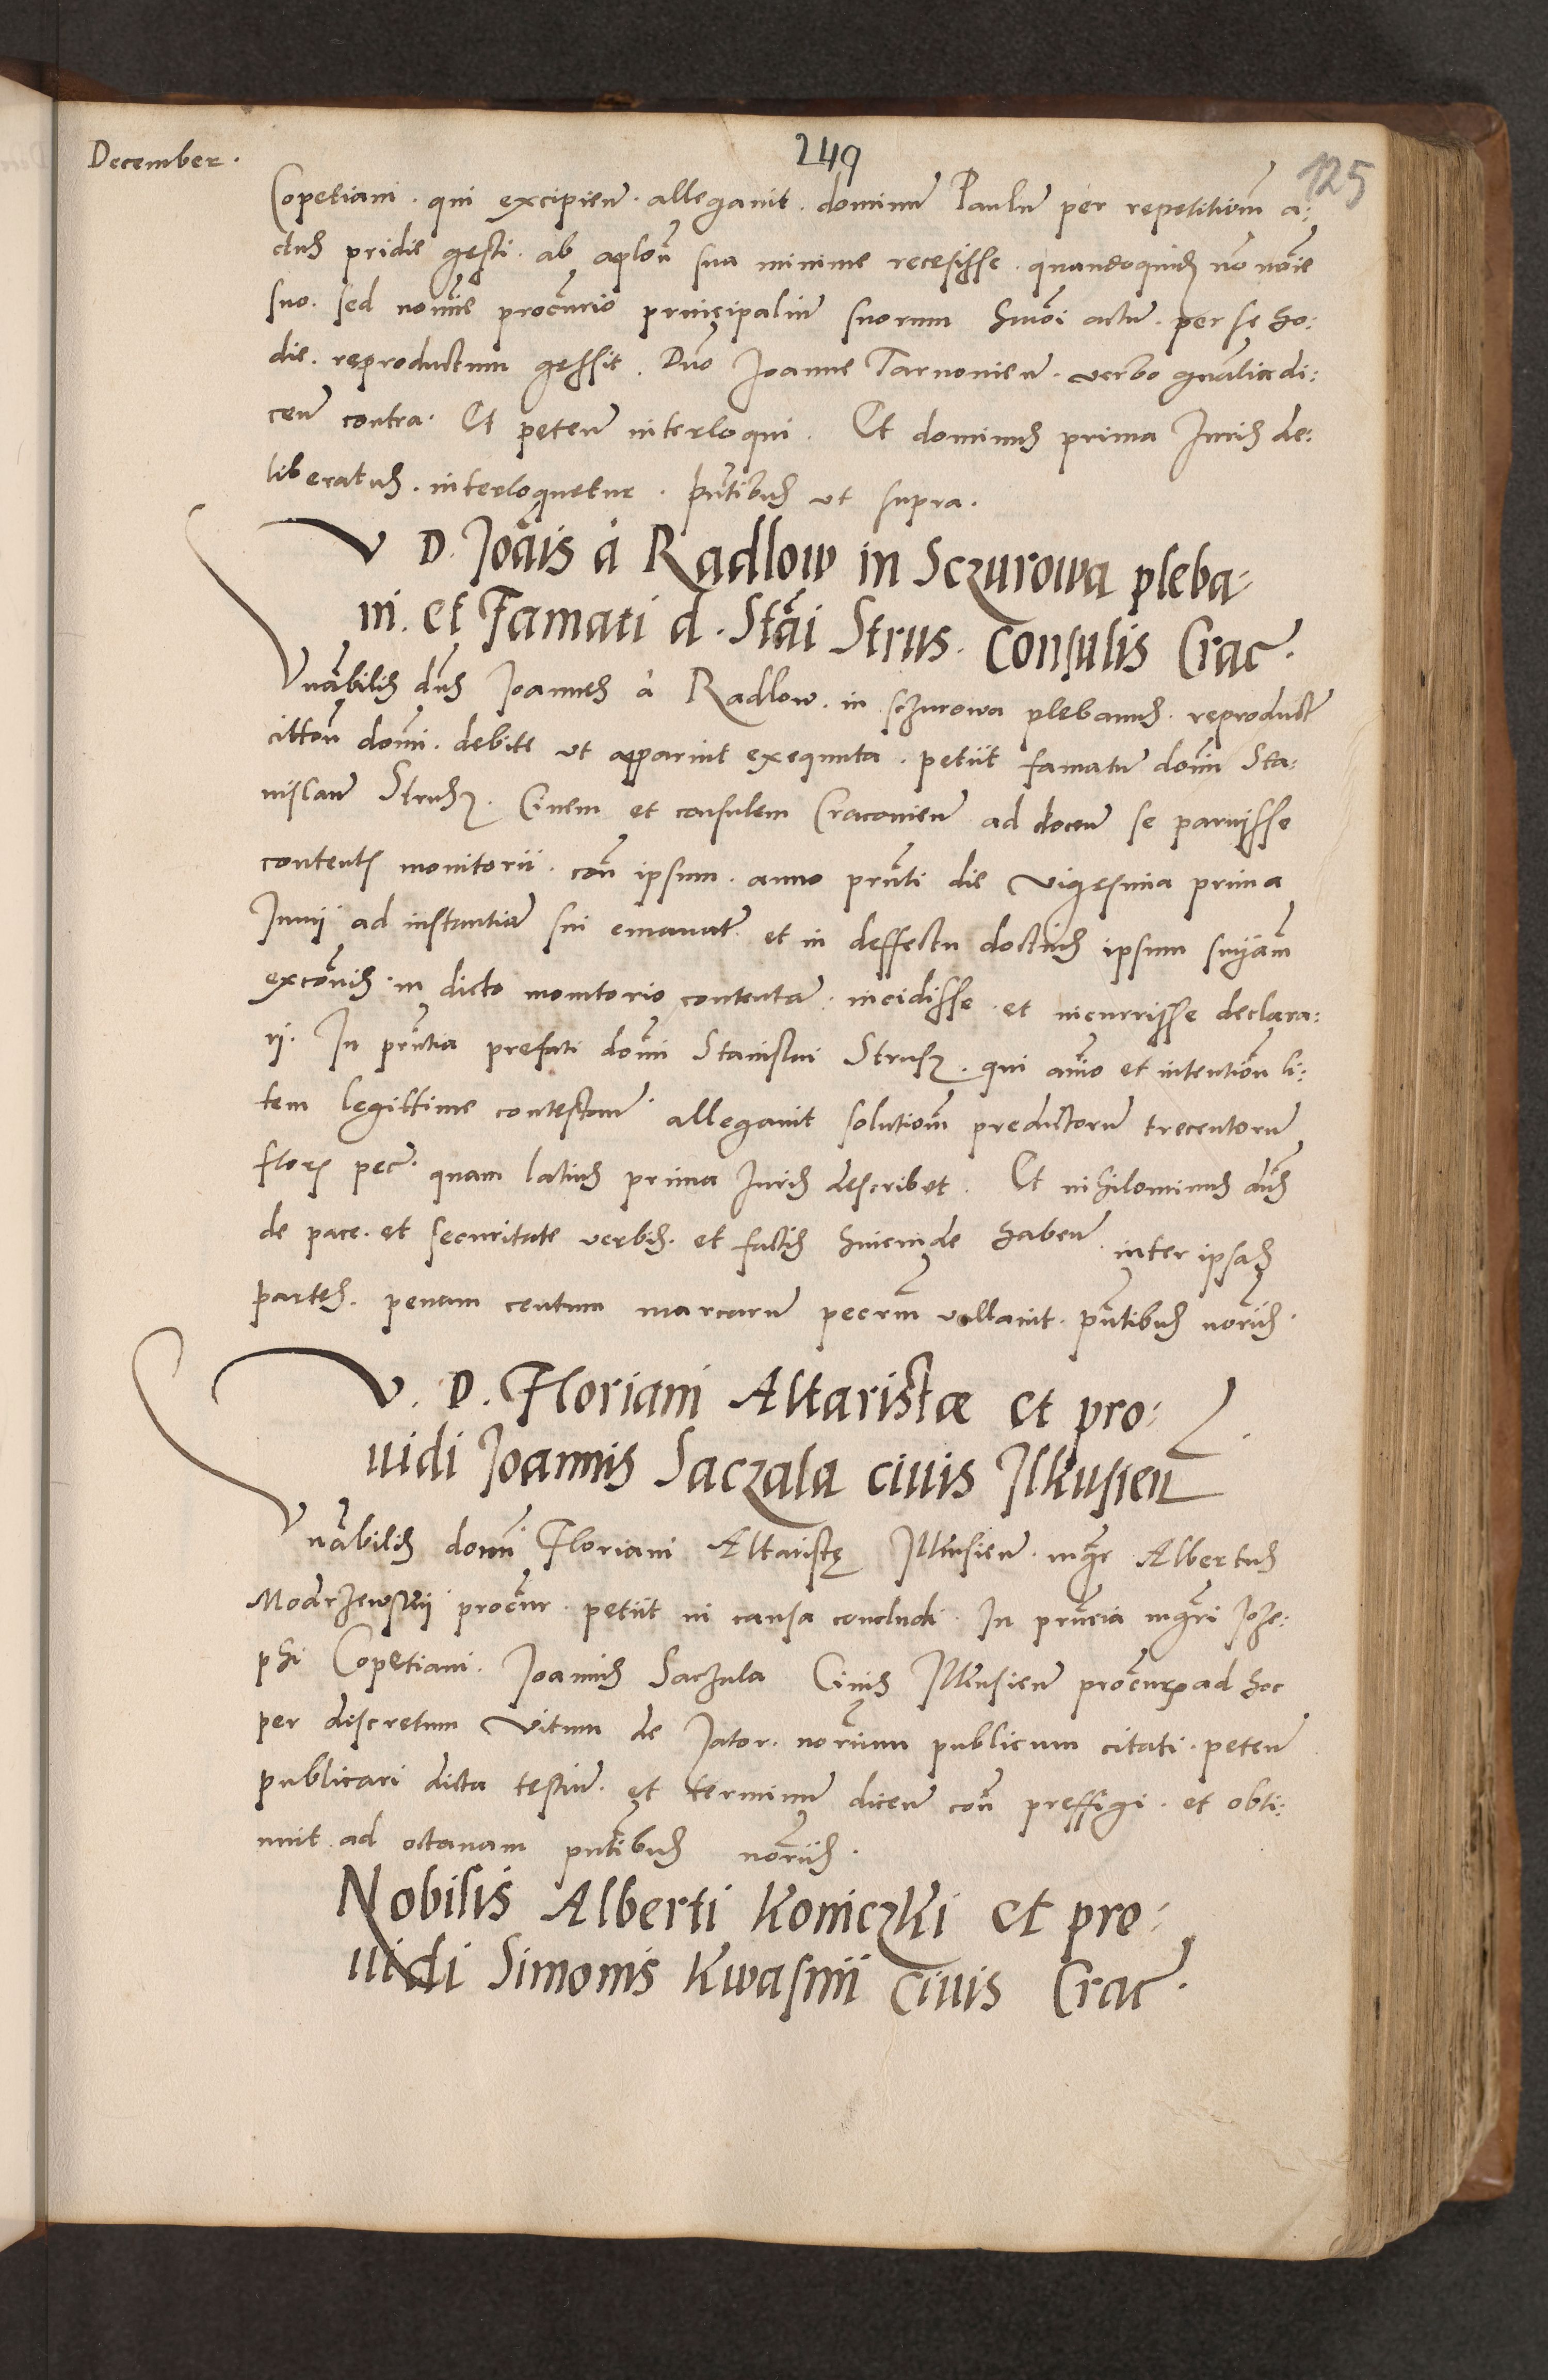 December.
249
125
Copetiani. qui excipien. allegauit. dominum Paulum per repetitiom a:
ctus pridie gesti. ab aplon sua minime recesisse. quandoquidem no noie
suo. sed nomie procurio principalium suorum humoi actum. per se ho:
die. reproductum gessit. Dno Joanne Tarnouien. verbo gnalia di:
cen contra. Et peten interloqui. Et dominus prima Juris de:
liberatus. interloquetur. pntibus vt supra.
V D. Joais à Radlow in Sczurowa pleba=
ni. et Famati d. Stai Strus. Consulis Crac.
Vnabilis dns Joannes à Radlow. in sczurowa plebanus. reproducta
citton domi. debite vt apparuit exequuta. petiit famatum domi Sta:
nislaum Strusz. Ciuem et consulem Cracouien ad docen se paruisse
contentis monitorii. con ipsum. anno prnti die vigesima prima
Junij ad instantiam sui emanat. et in deffectu doctius ipsum sniam
excois in dicto monitorio contentam. incidisse et incurrisse declara:
ri. In prntia prefati domi Stanislai Strusz. qui aio et intention li:
tem legittime contestan. allegauit solutiom predictorum trecentorum
flor pec. quam latius prima Juris describet. Et nihilominus dns
de pace. et securitate verbis. et factis hincinde haben inter ipsas
partes. penam centum marcarum pecrm vallauit. pntibus noriis.
V. D. Floriani Altaristæ et pro:
uidi Joannis Saczala ciuis Ilkusien
Vnabilis domi Floriani Altaristę Ilkusien. mgr Albertus
Modrzewskij procur. petiit in causa concludi. In prncia mgri Joze:
phi Copetiani. Joannis Saczula Ciuis Ilkusien procurs ad hoc
per discretum Vitum de Jator. norium publicum citati. peten
publicari dicta testium. et terminum dicen con preffigi. et obti:
nuit ad octauam pntibus noriis.
Nobilis Alberti Koniczki et pro:
uidi Simonis Kwasnii Ciuis Crac.